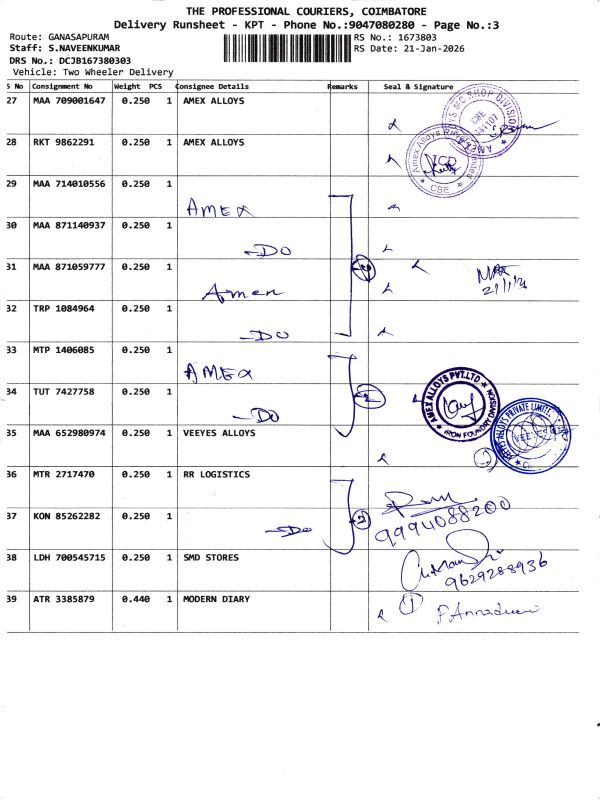 THE PROFESSIONAL COURIERS, COIMBATORE
Delivery Runsheet - KPT - Phone No.:9047080280 - Page No.:3
Route: GANASAPURAM
RS No.: 1673803
Staff: S.NAVEENKUMAR
RS Date: 21-Jan-2026
DRS No.: DCJB167380303
Vehicle: Two Wheeler Delivery
S No Consignment No Weight PCS Consignee Details Remarks Seal & Signature
27 MAA 709001647 0.250 1 AMEX ALLOYS
28 RKT 9862291 0.250 1 AMEX ALLOYS
29 MAA 714010556 0.250 1
AMEX
30 MAA 871140937 0.250 1
-DO
31 MAA 871059777 0.250 1
Amex
21/1/26
32 TRP 1084964 0.250 1
-DO
33 MTP 1406085 0.250 1
AMEX
34 TUT 7427758 0.250 1
-DO 2
AMEX ALLOYS PVT.LTD
IRON FOUNDRY DIVISION
35 MAA 652980974 0.250 1 VEEYES ALLOYS
36 MTR 2717470 0.250 1 RR LOGISTICS
37 KON 85262282 0.250 1
-DO 2
9994088200
38 LDH 700545715 0.250 1 SMD STORES
9629288936
39 ATR 3385879 0.440 1 MODERN DIARY
1